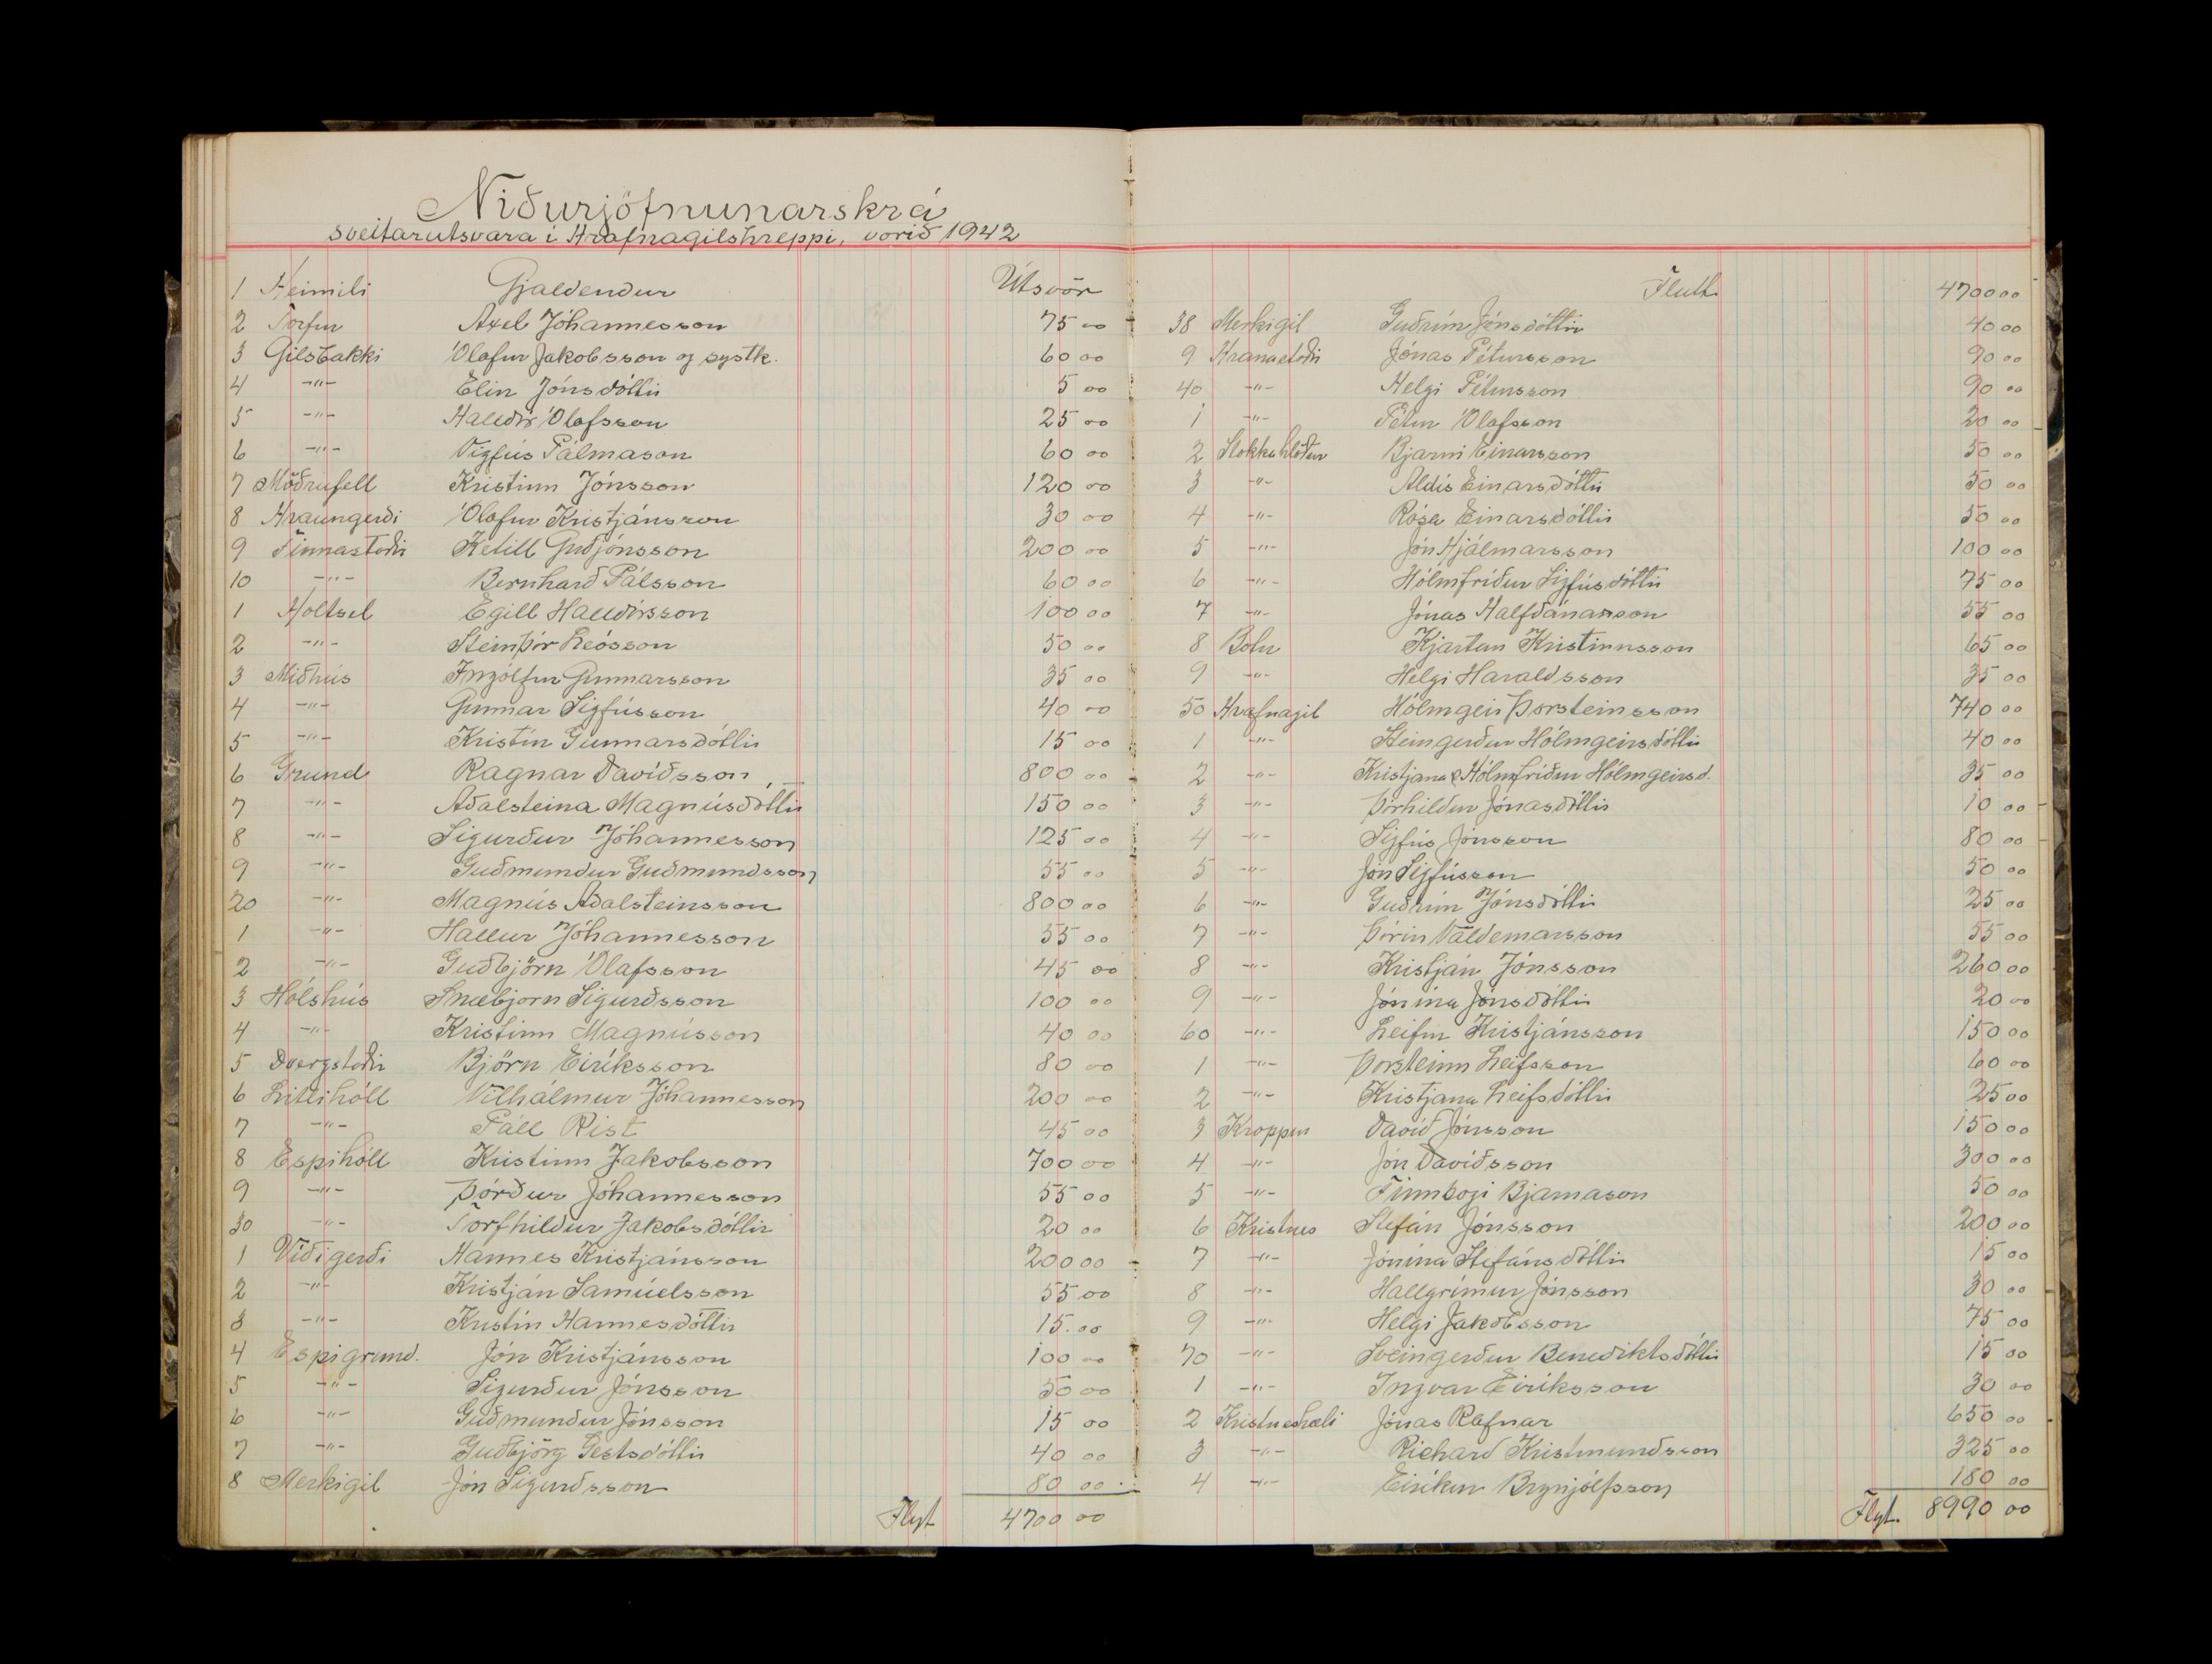 Niðurjöfnunarskrá
sveitarútsvara í Hrafnagilshreppi, vorið 1942
1 Heimili Gjaldendur Útsvör
2 Torfur Axel Jóhannesson 75 00
3 Gilsbakki Ólafur Jakobsson og systk. 60 00
4 -"- Elin Jónsdóttir 5 00
5 -"- Halldór Ólafsson 25 00
6 -"- Vigfús Pálmason 60 00
7 Möðrufell Kristinn Jónsson 120 00
8 Hraungerði Ólafur Kristjánsson 30 00
9 Finnastaðir Ketill Guðjónsson 200 00
10 -"- Bernharð Pálsson 60 00
1 Holtsel Egill Halldórsson 100 00
2 -"- Steinþór Leósson 50 00
3 Miðhús Ingólfur Gunnarsson 35 00
4 -"- Gunnar Sigfússon 40 00
5 -"- Kristín Gunnarsdóttir 15 00
6 Grund Ragnar Davíðsson 800 00
7 -"- Aðalsteina Magnúsdóttir 150 00
8 -"- Sigurður Jóhannesson 125 00
9 -"- Guðmundur Guðmundsson 55 00
20 -"- Magnús Aðalsteinsson 800 00
1 -"- Hallur Jóhannesson 55 00
2 -"- Guðbjörn Ólafsson 45 00
3 Hólshús Snæbjörn Sigurðsson 100 00
4 -"- Kristinn Magnússon 40 00
5 Dvergstaðir Björn Eiríksson 80 00
6 Litlihóll Vilhálmur Jóhannesson 200 00
7 -"- Páll Rist 45 00
8 Espihóll Kristinn Jakobsson 700 00
9 -"- Þórður Jóhannesson 55 00
30 -"- Torfhildur Jakobsdóttir 20 00
1 Víðigerði Hannes Kristjánsson 200 00
2 -"- Kristján Samúelsson 55 00
3 -"- Kristín Hannesdóttir 15.00
4 Espigrund. Jón Kristjánsson 100 00
5 -"- Sigurður Jónsson 50 00
6 -"- Guðmundur Jónsson 15 00
7 -"- Guðbjörg Gestsdóttir 40 00
8 Merkigil Jón Sigurðsson 80 00
Flyt 4700 00
Flutt 4700 00
38 Merkigil Guðrún Jónsdóttir 40 00
9 Hranastaðir Jónas Pétursson 90 00
40 -"- Helgi Pétursson 90 00
1 -"- Pétur Ólafsson 20 00
2 Stokkahlaðir Bjarni Einarsson 50 00
3 -"- Aldís Einarsdóttir 50 00
4 -"- Rósa Einarsdóttir 50 00
5 -"- Jón Hjálmarsson 100 00
6 -"- Hólmfríður Sigfúsdóttir 75 00
7 -"- Jónas Halfdánarson 55 00
8 Botn Kjartan Kristinnsson 65 00
9 -"- Helgi Haraldsson 35 00
50 Hrafnagil Hólmgeir Þorsteinsson 740 00
1 -"- Steingerður Hólmgeirsdóttir 40 00
2 -"- Kristjana & Hólmfríður Hólmgeirsd. 35 00
3 -"- Þórhildur Jónasdóttir 10 00
4 -"- Sigfús Jónsson 80 00
5 -"- Jón Sigfússon 50 00
6 -"- Guðrún Jónsdóttir 25 00
7 -"- Þórir Valdemarsson 55 00
8 -"- Kristján Jónsson 260 00
9 -"- Jónína Jónsdóttir 20 00
60 -"- Leifur Kristjánsson 150 00
1 -"- Þorsteinn Leifsson 60 00
2 -"- Kristjana Leifsdóttir 25 00
3 Kroppur Davíð Jónsson 150 00
4 -"- Jón Davíðsson 300 00
5 -"- Finnbogi Bjarnason 50 00
6 Kristnes Stefán Jónsson 200 00
7 -"- Jónína Stefánsdóttir 15 00
8 -"- Hallgrímur Jónsson 30 00
9 -"- Helgi Jakobsson 75 00
70 -"- Sveingerður Benediktsdóttir 15 00
1 -"- Ingvar Eiríksson 30 00
2 Kristneshæli Jónas Rafnar 650 00
3 -"- Richard Kristmundsson 325 00
4 -"- Eiríkur Brynjólfsson 180 00
Flyt. 8990 00